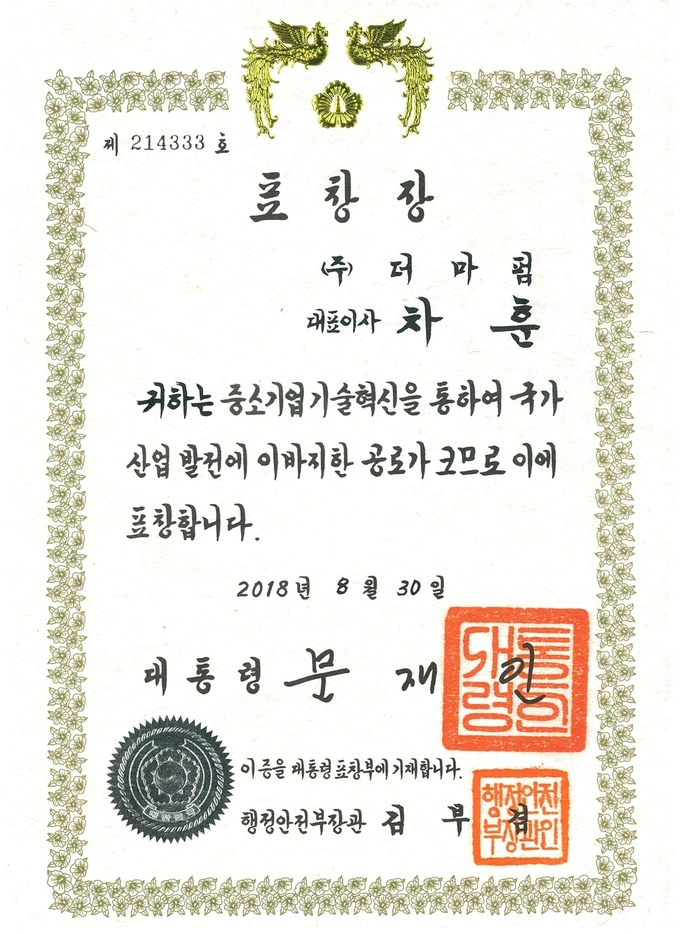 제 214333 호
표 창 장
(주) 더 마 펌
대표이사 차 훈
귀하는 중소기업 기술혁신을 통하여 국가
산업 발전에 이바지한 공로가 크므로 이에
표창합니다.
2018년 8월 30일
대 통 령 문 재 인
대통령의인
이 증을 대통령표창부에 기재합니다.
행정안전부장관 김 부 겸
행정안전
부장관인